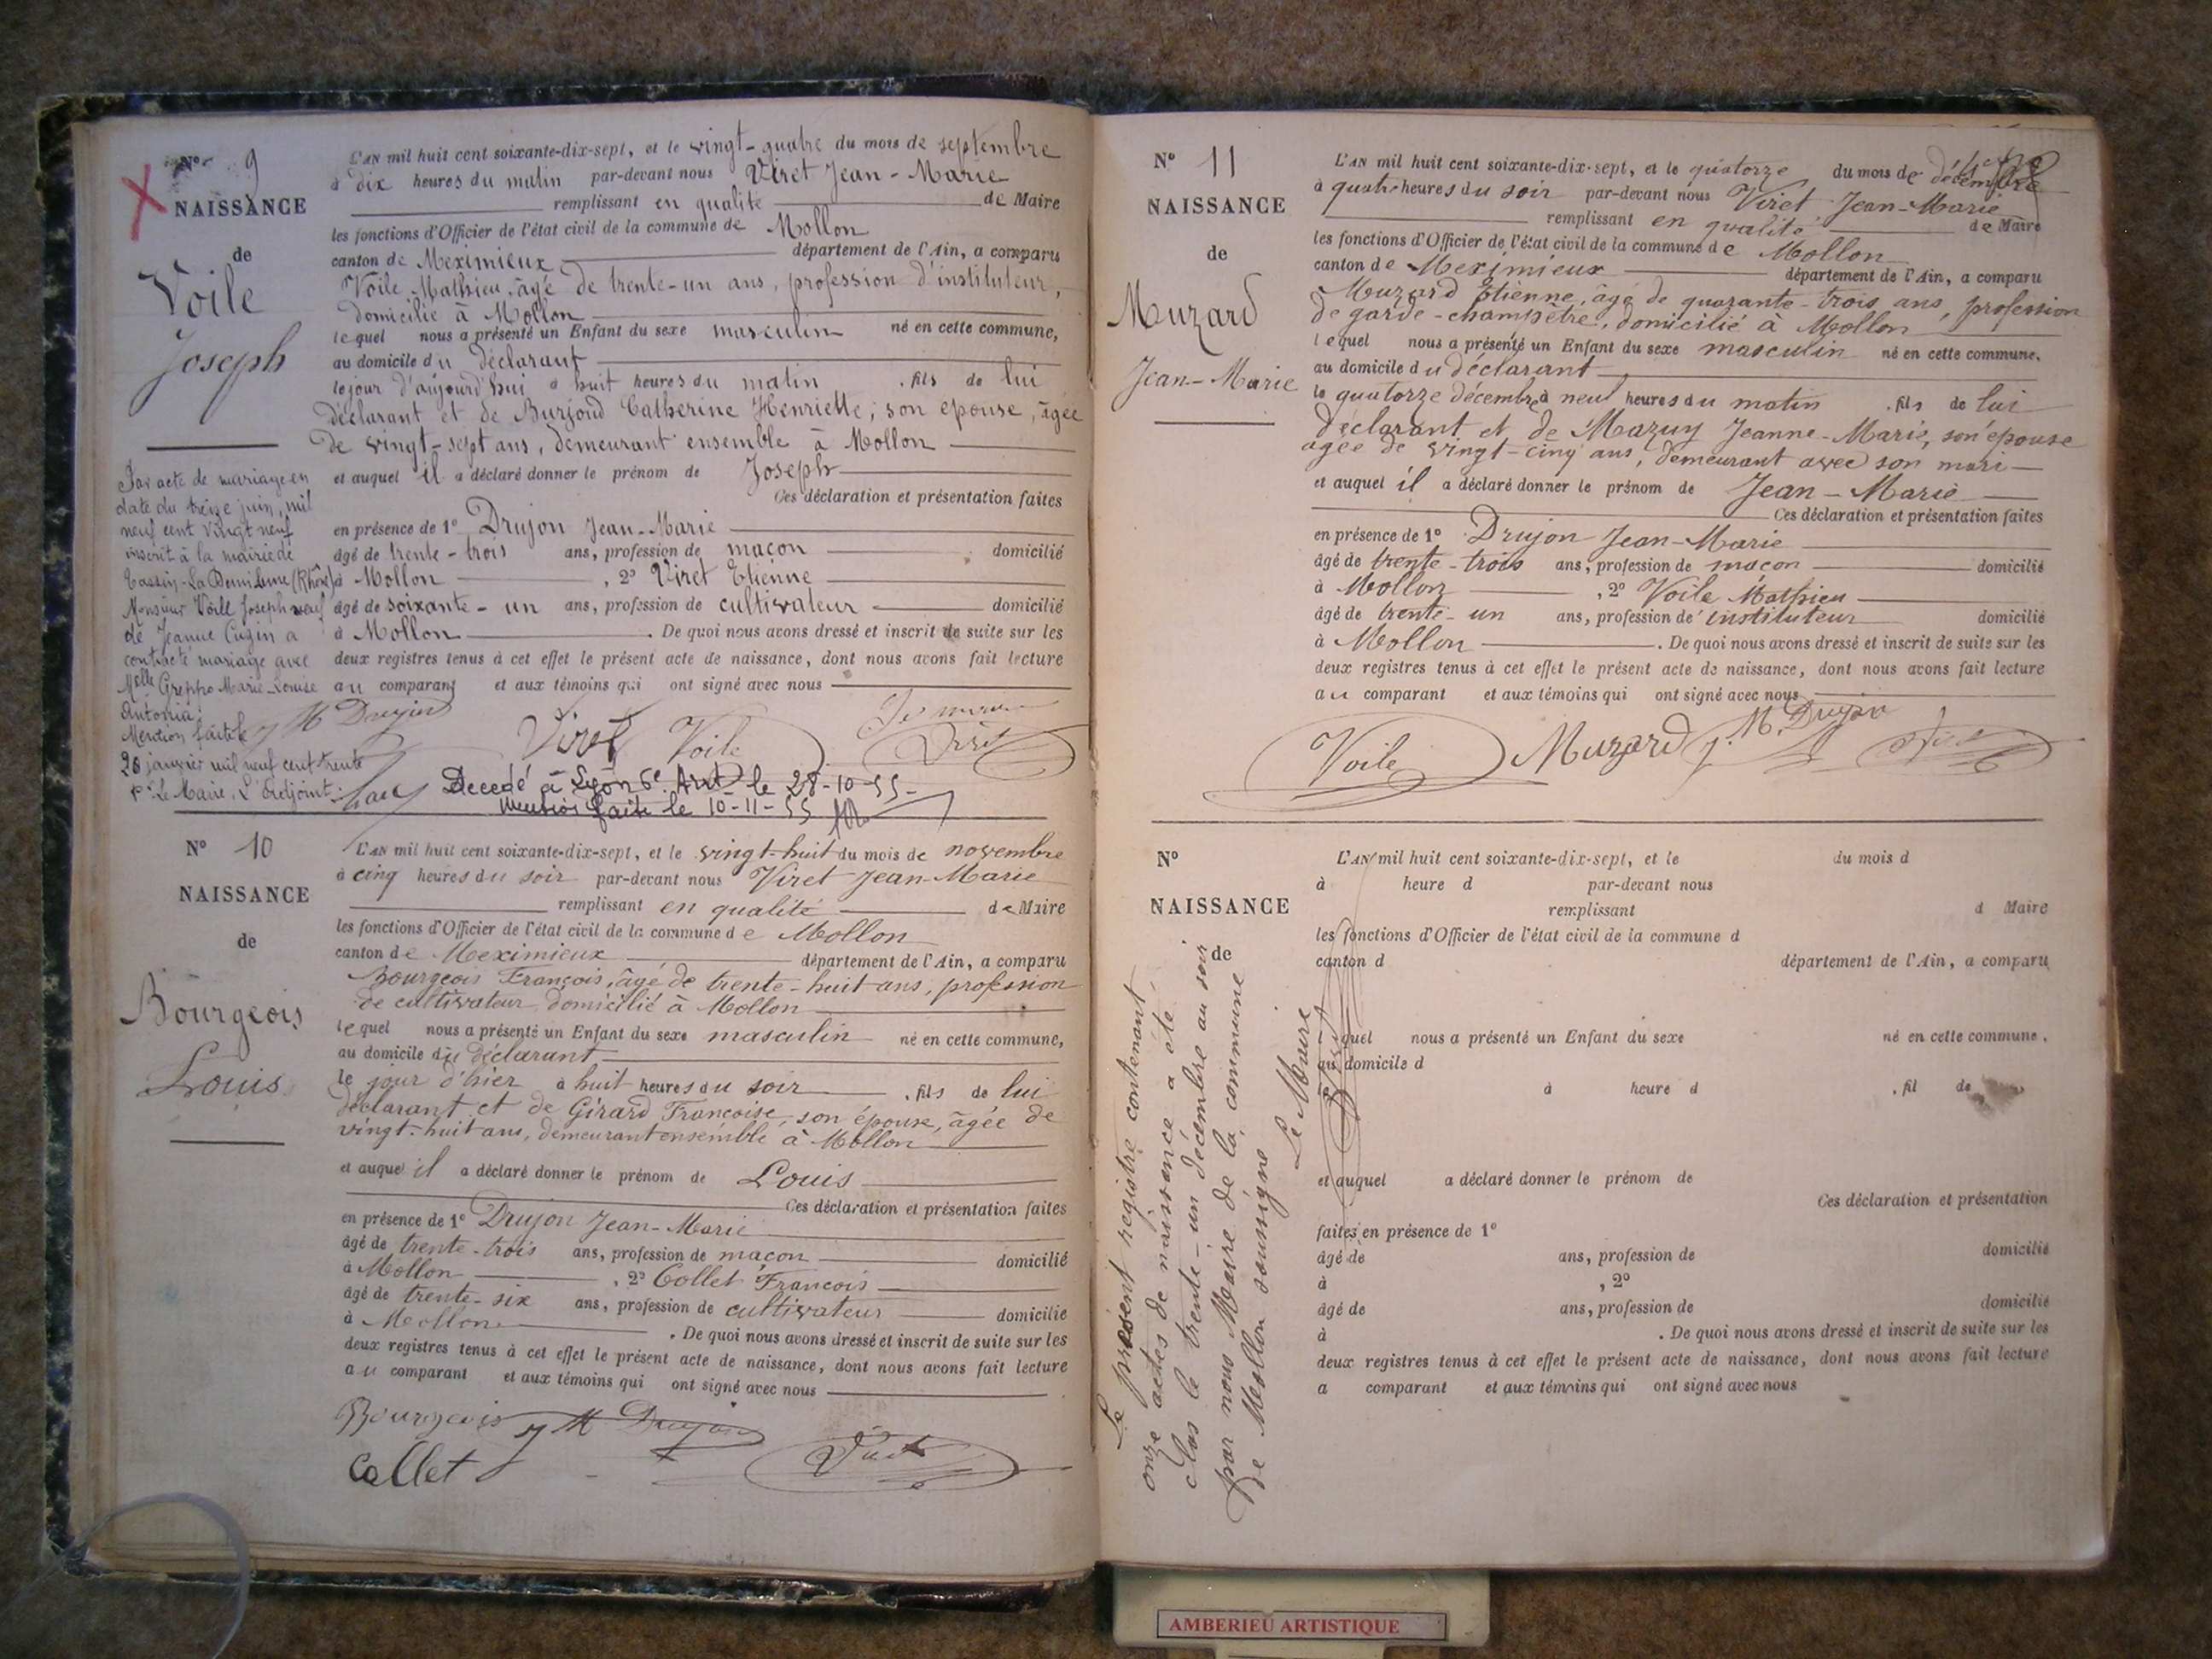 N° 9
NAISSANCE
de
Voile
Joseph
L'AN mil huit cent soixante-dix-sept, et le vingt-quatre du mois de septembre
à dix heures du matin par-devant nous Viret Jean-Marie
remplissant en qualité de Maire
les fonctions d'Officier de l'état civil de la commune de Mollon
canton de Meximieux département de l'Ain, a comparu
Voile Mathieu, âgé de trente-un ans, profession d'instituteur,
domicilié à Mollon
lequel nous a présenté un Enfant du sexe masculin né en cette commune,
au domicile du déclarant
le jour d'aujourd'hui à huit heures du matin, fils de lui
déclarant et de Burjoud Catherine Henriette, son épouse, âgée
de vingt-sept ans, demeurant ensemble à Mollon
et auquel il a déclaré donner le prénom de Joseph
Ces déclaration et présentation faites
en présence de 1° Drujon Jean-Marie
âgé de trente-trois ans, profession de maçon domicilié
à Mollon, 2° Viret Etienne
âgé de soixante-un ans, profession de cultivateur domicilié
à Mollon. De quoi nous avons dressé et inscrit de suite sur les
deux registres tenus à cet effet le présent acte de naissance, dont nous avons fait lecture
au comparant et aux témoins qui ont signé avec nous
Par acte de mariage en
date du treize juin, mil
neuf cent vingt neuf
inscrit à la mairie de
Tassin-La Demi Lune (Rhône)
Monsieur Voile Joseph veuf
de Jeanne Cugin a
contracté mariage avec
Melle Greppo Marie-Louise
Antonia.
Mention faite le
20 janvier mil neuf cent trente
Pr Le Maire, L'Adjoint:
J M Drujon Viret Voile
Decedé à Lyon 6e Art le 28-10-55-
Mention faite le 10-11-55
N° 10
NAISSANCE
de
Bourgeois
Louis
L'AN mil huit cent soixante-dix-sept, et le vingt-huit du mois de novembre
à cinq heures du soir par-devant nous Viret Jean-Marie
remplissant en qualité de Maire
les fonctions d'Officier de l'état civil de la commune de Mollon
canton de Meximieux département de l'Ain, a comparu
Bourgeois François, âgé de trente-huit ans, profession
de cultivateur domicilié à Mollon
lequel nous a présenté un Enfant du sexe masculin né en cette commune,
au domicile du déclarant
le jour d'hier à huit heures du soir, fils de lui
déclarant et de Girard Françoise, son épouse, âgée de
vingt-huit ans, demeurant ensemble à Mollon
et auquel il a déclaré donner le prénom de Louis
Ces déclaration et présentation faites
en présence de 1° Drujon Jean-Marie
âgé de trente-trois ans, profession de maçon domicilié
à Mollon, 2° Collet François
âgé de trente-six ans, profession de cultivateur domicilié
à Mollon. De quoi nous avons dressé et inscrit de suite sur les
deux registres tenus à cet effet le présent acte de naissance, dont nous avons fait lecture
au comparant et aux témoins qui ont signé avec nous
Bourgeois J M Drujon
Collet Viret
N° 11
NAISSANCE
de
Muzard
Jean-Marie
L'AN mil huit cent soixante-dix-sept, et le quatorze du mois de décembre
à quatre heures du soir par-devant nous Viret Jean-Marie
remplissant en qualité de Maire
les fonctions d'Officier de l'état civil de la commune de Mollon
canton de Meximieux département de l'Ain, a comparu
Muzard Etienne, âgé de quarante-trois ans, profession
de garde-champêtre, domicilié à Mollon
lequel nous a présenté un Enfant du sexe masculin né en cette commune.
au domicile du déclarant
le quatorze décembre à neuf heures du matin, fils de lui
déclarant et de Mazuy Jeanne-Marie, son épouse
âgée de vingt-cinq ans, demeurant avec son mari
et auquel il a déclaré donner le prénom de Jean-Marie
Ces déclaration et présentation faites
en présence de 1° Drujon Jean-Marie
âgé de trente-trois ans, profession de maçon domicilié
à Mollon, 2° Voile Mathieu
âgé de trente-un ans, profession d'instituteur domicilié
à Mollon. De quoi nous avons dressé et inscrit de suite sur les
deux registres tenus à cet effet le présent acte de naissance, dont nous avons fait lecture
au comparant et aux témoins qui ont signé avec nous
Voile Muzard J. M. Drujon Viret
N°
NAISSANCE
de
L'AN mil huit cent soixante-dix-sept, et le du mois d
à heure d par-devant nous
remplissant d Maire
les fonctions d'Officier de l'état civil de la commune d
canton d département de l'Ain, a comparu
quel nous a présenté un Enfant du sexe né en cette commune.
au domicile d
le à heure d , fil de
et auquel a déclaré donner le prénom de
Ces déclaration et présentation
faites en présence de 1°
âgé de ans, profession de domicilié
à , 2°
âgé de ans, profession de domicilié
à . De quoi nous avons dressé et inscrit de suite sur les
deux registres tenus à cet effet le présent acte de naissance, dont nous avons fait lecture
a comparant et aux témoins qui ont signé avec nous
Le présent registre contenant
onze actes de naissance a été
clos le trente-un décembre au soir
par nous Maire de la commune
de Mollon soussigné
Le Maire
AMBERIEU ARTISTIQUE